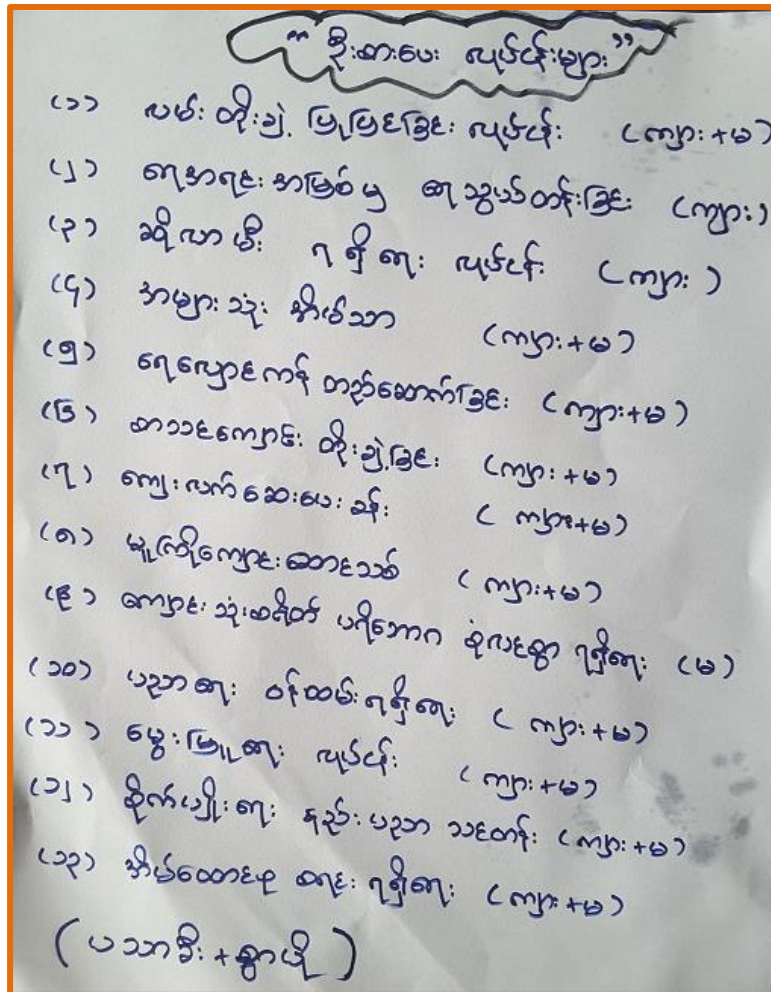 “ ဦးစားပေး လုပ်ငန်းများ ”
(၁) လမ်း တိုးချဲ့ ပြုပြင်ခြင်း လုပ်ငန်း (ကျား+မ)
(၂) ရေအရင်းအမြစ်မှ ရေသွယ်တန်းခြင်း (ကျား)
(၃) ဆိုလာမီး ရရှိရေး လုပ်ငန်း (ကျား)
(၄) အများသုံး အိမ်သာ (ကျား+မ)
(၅) ရေလှောင်ကန် တည်ဆောက်ခြင်း (ကျား+မ)
(၆) စာသင်ကျောင်း တိုးချဲ့ခြင်း (ကျား+မ)
(၇) ကျေးလက်ဆေးပေးခန်း (ကျား+မ)
(၈) မူကြိုကျောင်းဆောင်သစ် (ကျား+မ)
(၉) ကျောင်းသုံးစရိတ် ပရိဘောဂ စုံလင်စွာ ရရှိရေး (မ)
(၁၀) ပညာရေး ဝန်ထမ်းရရှိရေး (ကျား+မ)
(၁၁) မွေးမြူရေး လုပ်ငန်း (ကျား+မ)
(၁၂) စိုက်ပျိုးရေး နည်းပညာ သင်တန်း (ကျား+မ)
(၁၃) အိမ်ထောင်စု စာရင်း ရရှိရေး (ကျား+မ)
(ပသာခီး+ရွာပို)